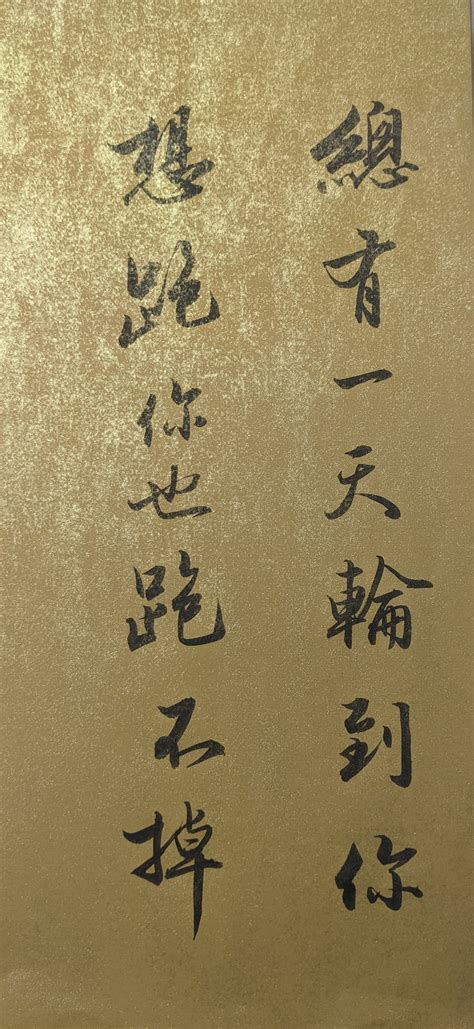 總有一天輪到你
想跑你也跑不掉